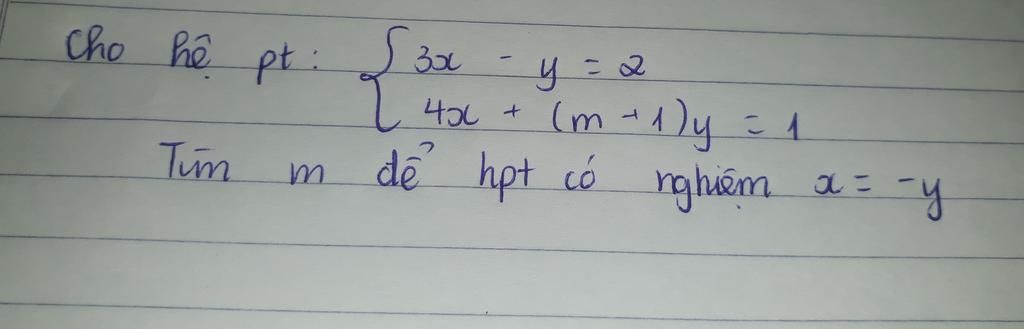 Cho hệ pt: { 3x - y = 2
4x + (m + 1)y = 1
Tìm m để hpt có nghiệm x = -y